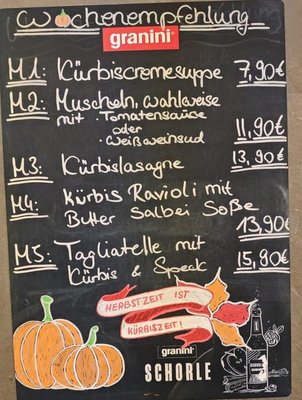 Wochenempfehlung
granini
M1: Kürbiscremesuppe 7,90€
M2: Muscheln, wahlweise
mit Tomatensauce
oder
Weißweinsud 11,90€
M3: Kürbislasagne 13,90€
M4: Kürbis Ravioli mit
Butter Salbei Soße
13,90€
M5: Tagliatelle mit 15,90€
Kürbis & Speck
HERBSTZEIT IST
KÜRBISZEIT!
granini
SCHORLE